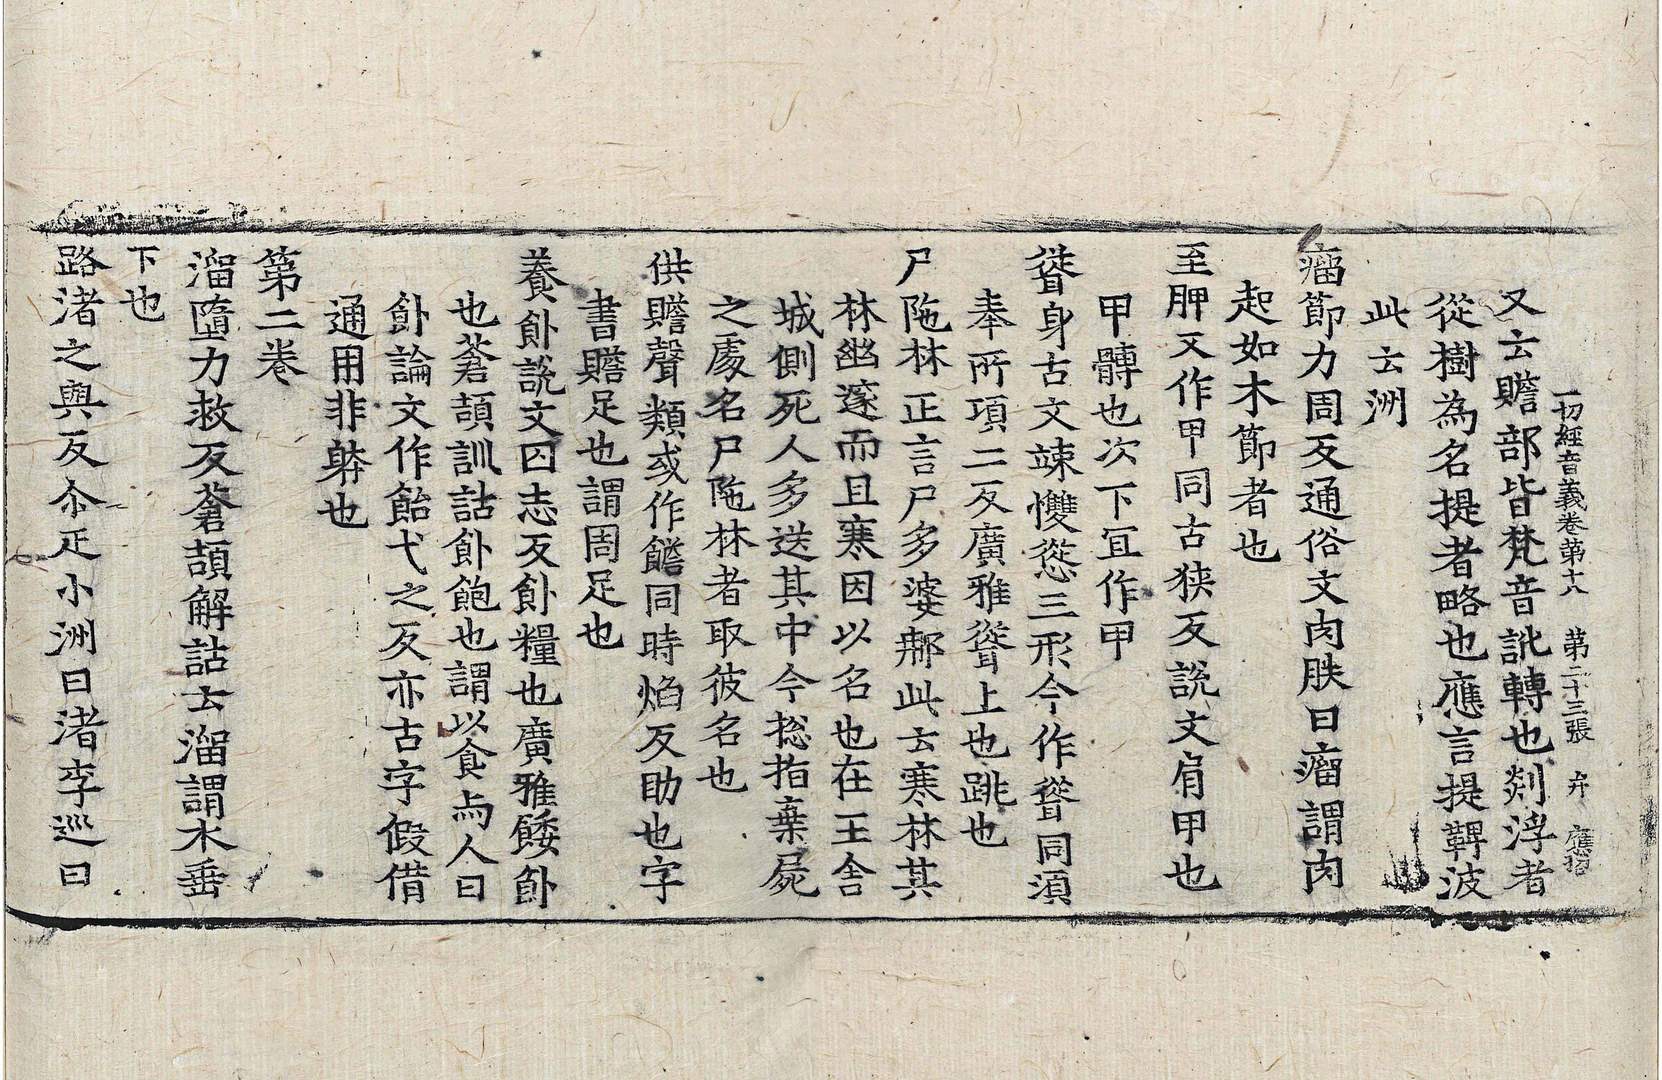 一切經音義卷第十八　第二十三張　弁　應招
又云贍部皆梵音訛轉也剡浮者
從樹為名提者略也應言提鞞波
此云洲
瘤節力周反通俗文肉胅曰瘤謂肉
起如木節者也
至胛又作甲同古狹反說文肩甲也
甲髆也次下冝作甲
聳身古文竦㩳慫三形今作聳同須
奉所項二反廣雅聳上也跳也
尸陁林正言尸多婆那此云寒林其
林幽邃而且寒因以名也在王舍
城側死人多送其中今揔指棄屍
之處名尸陁林者取彼名也
供贍聲類或作饍同時焰反助也字
書贍足也謂周足也
養飤說文囚志反飤糧也廣雅餧飤
也蒼頡訓詁飤飽也謂以食與人曰
飤論文作飴弋之反亦古字假借
通用非躰也
第二卷
溜墮力救反蒼頡解詁云溜謂水垂
下也
路渚之與反尒疋小洲曰渚李巡曰